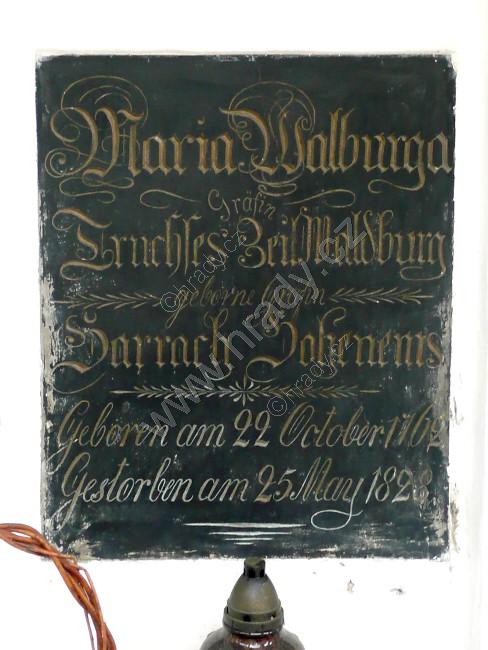 Maria Walburga
Gräfin
Truchses Zeil Waldburg
geborne Gräfin
Harrach Hohenems
Geboren am 22 October 1762
Gestorben am 25 May 1828
www.hrady.cz
©hrady.cz
©hrady.cz